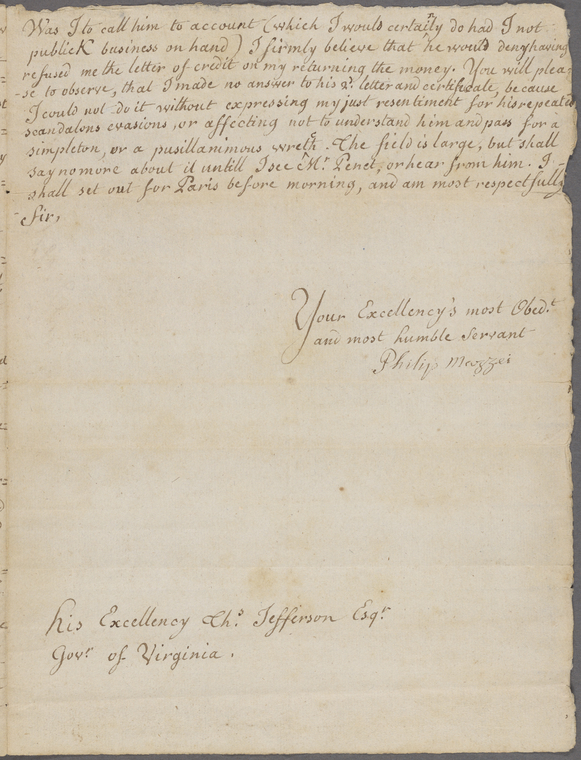 Was I to call him to account (which I would certainly do had I not
publick business on hand) I firmly believe that he would deny having
refused me the letter of credit on my returning the money. You will plea-
-se to observe, that I made no answer to his 2. letter and certificate, because
I could not do it without expressing my just resentiment for his repeated
scandalous evasions, or affecting not to understand him and pass for a
simpleton, or a pusillanimous wretch. The field is large, but shall
say no more about it untill I see Mr. Penet, or hear from him. I
shall set out for Paris before morning, and am most respectfully
Sir,
Your Excellency's most Obed.t
and most humble Servant
Philip Mazzei
his Excellency Ths. Jefferson Esqr.
Govr. of Virginia.